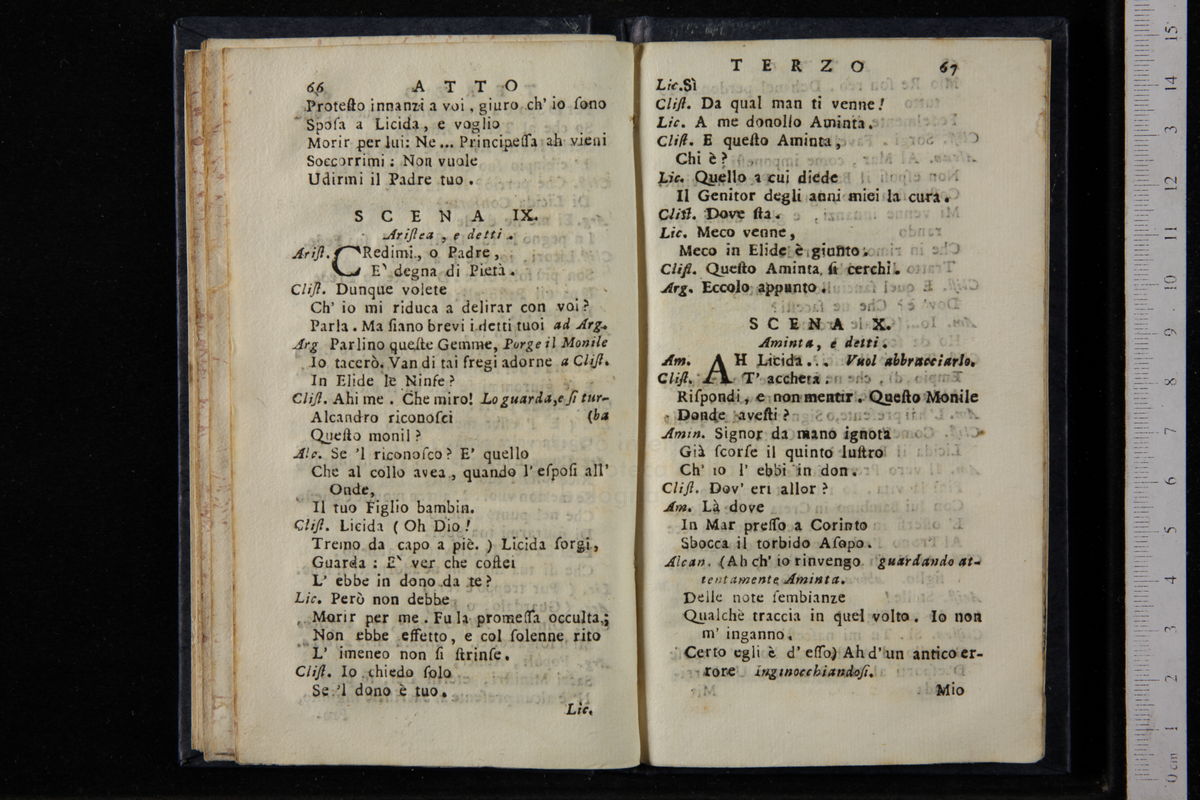 66 ATTO
Protesto innanzi a voi, giuro ch' io sono
Sposa a Licida, e voglio
Morir per lui: Ne... Principessa ah vieni
Soccorrimi: Non vuole
Udirmi il Padre tuo.
SCENA IX.
Aristea, e detti.
Arist. CRedimi, o Padre,
E` degna di Pietà.
Clist. Dunque volete
Ch' io mi riduca a delirar con voi?
Parla. Ma siano brevi i detti tuoi ad Arg.
Arg Parlino queste Gemme, Porge il Monile
Io tacerò. Van di tai fregi adorne a Clist.
In Elide le Ninfe?
Clist. Ahi me. Che miro! Lo guarda, e si tur-
Alcandro riconosci (ba
Questo monil?
Alc. Se 'l riconosco? E' quello
Che al collo avea, quando l' esposi all'
Onde,
Il tuo Figlio bambin.
Clist. Licida (Oh Dio!
Tremo da capo a piè.) Licida sorgi,
Guarda: E` ver che costei
L' ebbe in dono da te?
Lic. Però non debbe
Morir per me. Fu la promessa occulta,;
Non ebbe effetto, e col solenne rito
L' imeneo non si strinse.
Clist. Io chiedo solo
Se 'l dono è tuo.
Lic.
TERZO 67
Lic. Sì
Clist. Da qual man ti venne!
Lic. A me donollo Aminta.
Clist. E questo Aminta,
Chi è?
Lic. Quello a cui diede
Il Genitor degli anni miei la cura.
Clist. Dove sta.
Lic. Meco venne,
Meco in Elide è giunto.
Clist. Questo Aminta si cerchi.
Arg. Eccolo appunto.
SCENA X.
Aminta, e detti.
Am. AH Licida... Vuol abbracciarlo.
Clist. T' accheta.
Rispondi, e non mentir. Questo Monile
Donde avesti?
Amin. Signor da mano ignota
Già scorse il quinto lustro
Ch' io l' ebbi in don.
Clist. Dov' eri allor?
Am. Là dove
In Mar presso a Corinto
Sbocca il torbido Asopo.
Alcan. (Ah ch' io rinvengo guardando at-
tentamente Aminta.
Delle note sembianze
Qualchè traccia in quel volto. Io non
m' inganno.
Certo egli è d' esso) Ah d' un antico er-
rore inginocchiandosi.
Mio